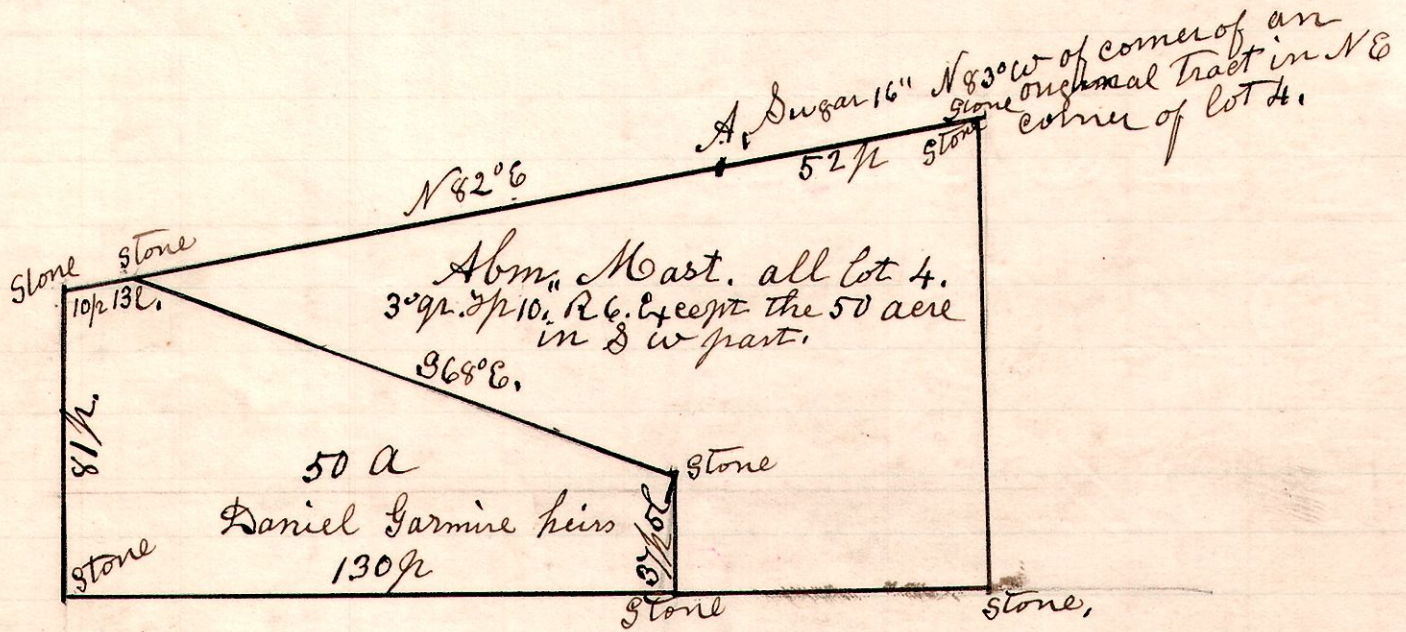 A, Sugar 16" N83°W of corner of an
original Tract in NE
corner of lot 4.
Stone
Stone
52p
N82°E
Stone
Stone
10p 13l.
Abm,, Mast. all lot 4.
3°qr. Tp 10,, R 6. Except the 50 acre
in S W part.
S68°E.
81p.
50 A
Stone
Daniel Garmire heirs
130p
Stone
Stone
Stone,